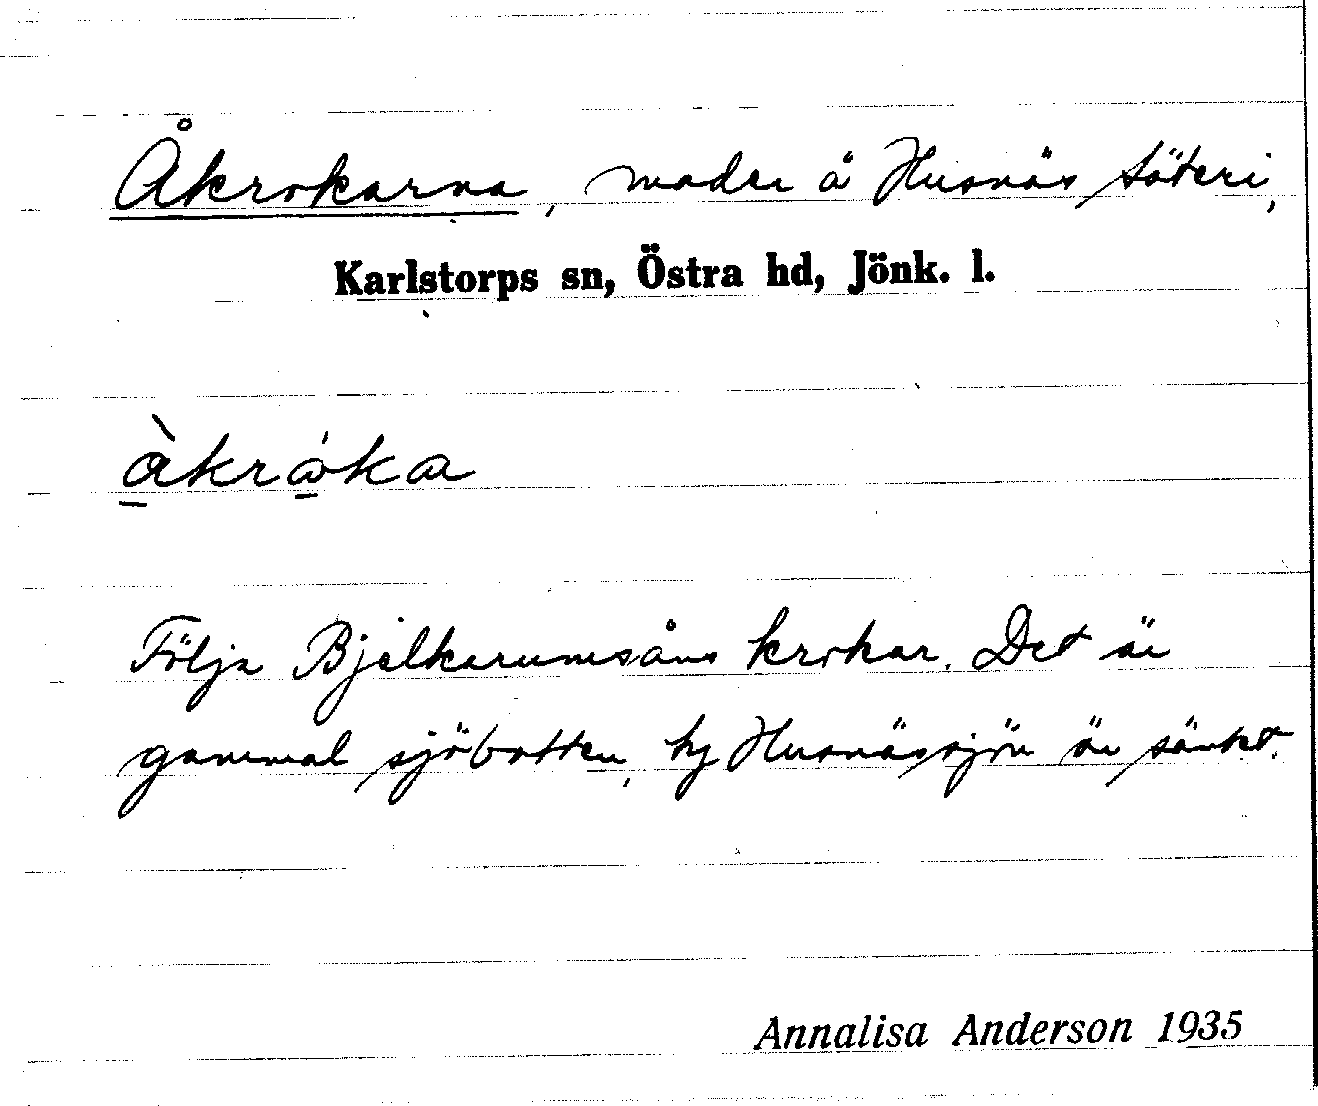 Åkrokarna, mader å Husnäs säteri,
Karlstorps sn, Östra hd, Jönk. l.
Följa Bjelkarumsåns krokar. Det är
gammal sjöbotten, ty Husnässjön är sänkt.
Annalisa Anderson 1935